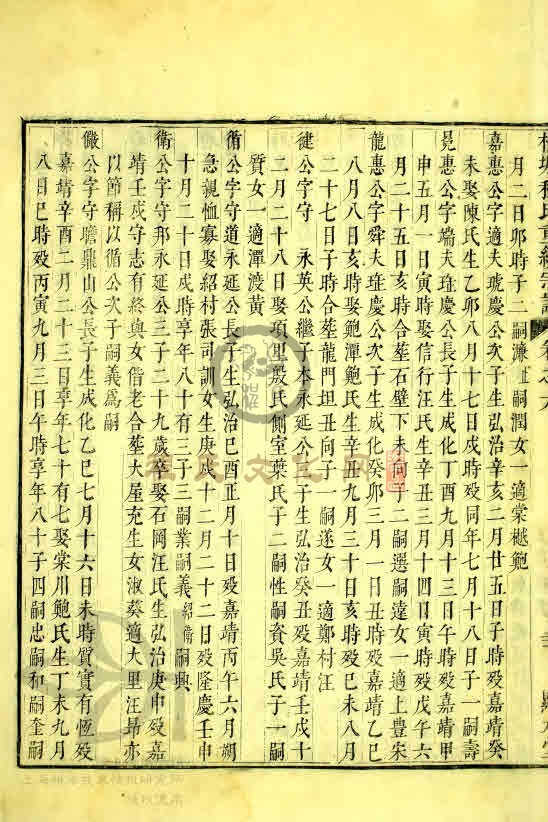 月二日卯時子二嗣濂 嗣潤女一適棠樾鮑
嘉惠公字適夫琥慶公次子生弘治辛亥二月廿五日子時歿嘉靖癸
未娶陳氏生乙卯八月十七日戌時歿同年七月十八日子一嗣壽
晃惠公字端夫琟慶公長子生成化丁酉九月十三日午時歿嘉靖甲
申五月一日寅時娶信行汪氏生辛丑三月十四日寅時歿戊午六
月二十五日亥時合塟石壁下未向子二嗣選嗣遠女一適上豊宋
龍惠公字舜夫琟慶公次子生成化癸卯三月一日丑時歿嘉靖乙巳
八月八日亥時娶鮑潭鮑氏生辛 九月三十日亥時歿己未八月
二十七日子時合塟龍門坦丑向子一嗣遂女一適鄭村汪
健公字守 永英公繼子本永延公 子生弘治癸丑歿嘉靖壬戌十
二月二十八日娶項里殷氏側室葉氏子二嗣性嗣資吳氏子一嗣
質女一適潭渡黄
脩公字守道永延公長子生弘治己酉正月十日歿嘉靖丙午六月朔
急親恤寡娶紹村張司訓女生庚戌十二月二十二日歿隆慶壬申
十月二十日戌時享年八十有三子三嗣業嗣義紹衛嗣興
衛公字守邦永延公三子二十九歲卒娶石岡汪氏生弘治庚申歿嘉
靖壬戌守志有終與女偕老合塟大屋充生女淑葵適大里汪昻亦
以節稱以脩公次子嗣義爲嗣
儼公字守瞻鼎山公長子生成化乙巳七月十六日未時質實有恆歿
嘉靖辛酉二月二十三日享年七十有七娶棠川鮑氏生丁未九月
八日巳時歿丙寅九月三日午時享年八十子四嗣忠嗣和嗣奎嗣